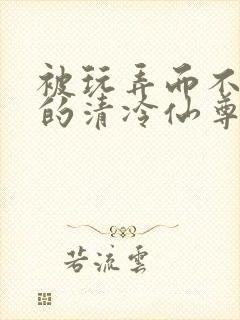 被玩弄而不
的清冷仙尊
若流雲